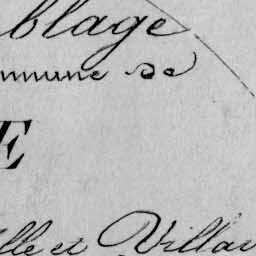 blage
mmune de
E
lle et Villar